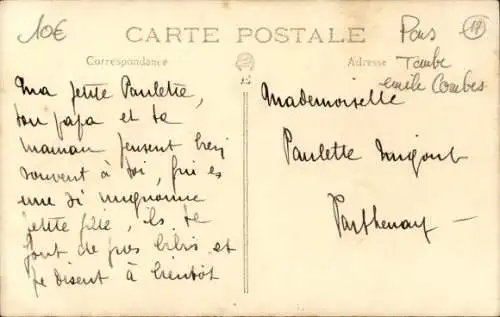 10€
CARTE POSTALE
Pons
17
Correspondance
Adresse
Tombe
emile Combes
Ma petite Paulette,
ton papa et ta
maman pensent bien
souvent à toi, qui es
une si mignonne
petite fille, ils te
font de gros bibis et
te disent à bientôt
Mademoiselle
Paulette
Parthenay -